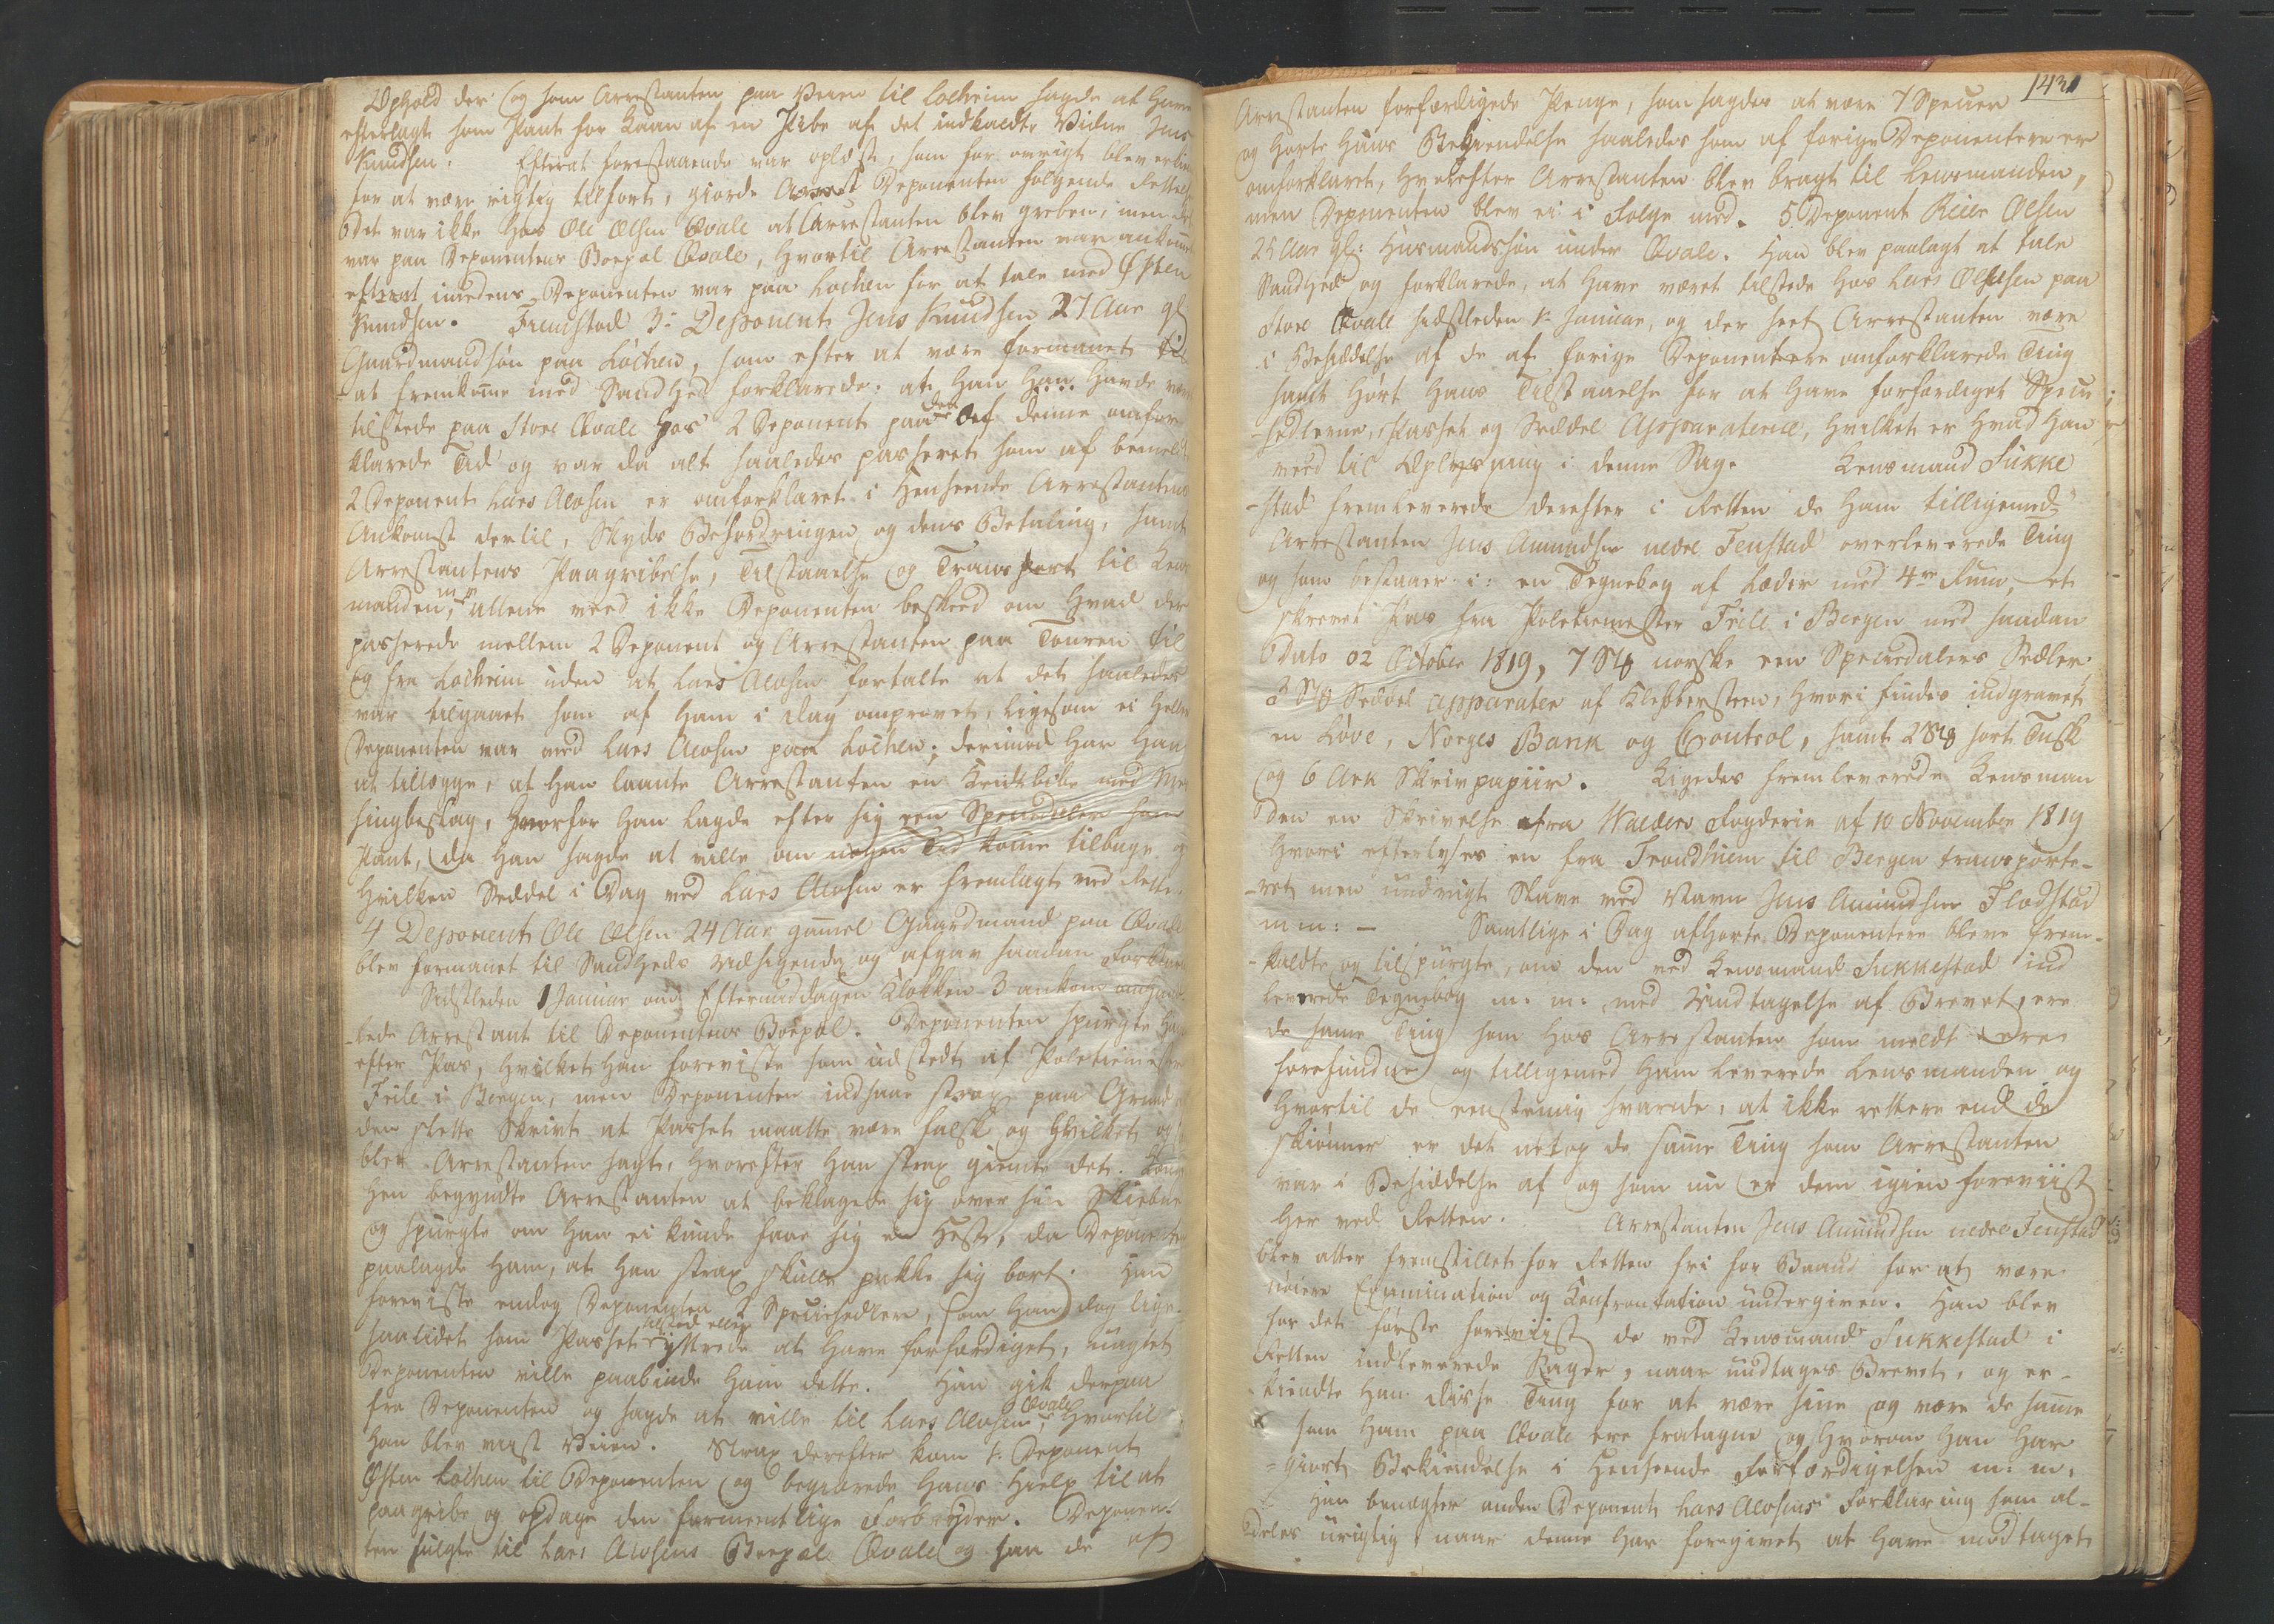 Ophold der og som Arrestanten paa Veien til Locheim sagde at have
efterlagt som Pant for Laan af en Pibe af det indkaldte Vidne Jens
Knudsen. Efterat forestaaende var oplæst, som for øvrigt blev
for at være rigtig tilført, giorde Deponenten følgende Rettelse
Det var ikke hos Ole Olsen Qvale at Arrestanten blev greben, men det
var paa Deponentens Boepæl Qvale, hvortil Arrestanten var ankommen
efterat imedens Deponenten var paa Lochen for at tale med Østen
Knudsen. Fremstod 3: Deponent Jens Knudsen 27 Aar gl
Gaardmandssøn paa Løchen, som efter at være formanet til
at fremkomme med Sandhed forklarede: at han havde været
tilstede paa Store Qvale hos 2 Deponent paa den af denne omfor-
klarede Tid og var da alt saaledes passeret som af bemeldte
2 Deponent Lars Alosen er omforklaret i Henseende Arrestantens
Ankomst dertil, Skyds Befordringen og dens Betaling, samt
Arrestantens Paagribelse, Tilstaaelse og Transport til Lens
manden, men allene veed ikke Deponenten besked om hvad der
passerede mellem 2 Deponent og Arrestanten paa Touren til
og fra Locheim uden at Lars Alosen fortalte at det saaledes
var tilgaaet som af ham i Dag omprovet, ligesom ei heller
Deponenten var med Lars Alosen paa Lochen; derimod har han
at tillægge, at han laante Arrestanten en med Mes
singbeslag, hvorfor han lagde efter sig een Speciedaler som
Pant, da han sagde at ville om nogen Tid komme tilbage og
hvilken Seddel i Dag ved Lars Alosen er fremlagt ved Retten
4 Deponent Ole Olsen 24 Aar gammel Gaardmand paa Qvale
blev formanet til Sandheds Udsigende og afgav saadan Forklaring
Sidstleden 1 Januar om Eftermiddagen Klokken 3 ankom omhand-
lede Arrestant til Deponentens Boepæl. Deponenten spurgte ham
efter Pas, hvilket han foreviste som udstedt af Politiemester
Friele i Bergen, men Deponenten indsaae strax paa Grund af
den slette Skrivt at Passet maatte være falsk og hvilket og
blev Arrestanten sagt, hvorefter han strax giemte det.
hen begyndte Arrestanten at beklagede sig over sin Skiebne
og spurgte om han ei kunde faae sig en Hest, da Deponenten
paalagde ham, at han strax skulle pakke sig bort. Han
foreviste endog Deponenten 2 Speciesedler, som han dog lige-
saalidet som Passet tilstod eller yttrede at have forfærdiget, uagtet
Deponenten ville paabinde ham dette. Han gik derpaa
fra Deponenten og sagde at ville til Lars Alosen Qvale, hvortil
han blev viist Veien. Strax derefter kom 1: Deponent
Østen Løchen til Deponenten og begiærede hans Hielp til at
paagribe og opdage den formeentlige Forbryder. Deponen-
ten fulgte til Lars Alosens Boepæl Qvale og saa de af
1431
Arrestanten forfærdigede Penge, som sagdes at være 7 Specier
og hørte hans Bekiendelse saaledes som af forige Deponentere er
omforklaret, hvorefter Arrestanten blev bragt til Lensmanden,
men Deponenten blev ei i Følge med. 5 Deponent Reier Olsen
25 Aar gl: Husmandssøn under Qvale. Han blev paalagt at tale
Sandhed og forklarede, at have været tilstede hos Lars Olsen paa
Store Qvale sidstleden 1: Januar, og der seet Arrestanten være
i Besiddelse af de af forige Deponentere omforklarede Ting
samt hørt hans Tilstaaelse for at have forfærdiget Specie
-sedlerne, Passet og Seddel Apparaterne, hvilket er hvad han
veed til Oplysning i denne Sag. Lensmand Sukke
-stad fremleverede derefter i Retten de ham tilligemed
Arrestanten Jens Amundsen nedre Fenstad overleverede Ting
og som bestaaer i: en Tegnebog af Læder med 4re Rum, et
skrevet Pas fra Politiemester Friele i Bergen med saadan
Dato 02 October 1819, 7 Stk norske een Speciedalers Sedler
3 Stk Seddel apparater af Klebbersteen, hvori findes indgravet
en Løve, Norges Bank og Control, samt 2 Stk sort Tusk
og 6 Ark Skrivpapiir. Ligedes fremleverede Lensman
den en Skrivelse fra Walders Fogderie af 10 November 1819
hvori efterlyses en fra Trondhiem til Bergen transporte-
-ret men undvigt Slave ved Navn Jens Amundsen Fladstad
m m: — Samtlige i Dag afhørte Deponentere bleve frem-
-kaldte og tilspurgte, om den ved Lensmand Sukkestad ind
leverede Tegnebog m: m: med Undtagelse af Brevet, ere
de samme Ting som hos Arrestanten som meldt ere
forefundne og tilligemed ham leverede Lensmanden og
hvortil de eenstemig svarede, at ikke rettere end de
skiønner er det netop de samme Ting som Arrestanten
var i Besiddelse af og som nu er dem igien foreviist
her ved Retten. Arrestanten Jens Amundsen nedre Fenstad
blev atter fremstillet for Retten fri for Baand for at være
nøiere Examination og Confrontation undergiven. Han blev
for det første foreviist de ved Lensmand Sukkestad i
Retten indleverede Sager, naar undtages Brevet, og er-
kiendte han disse Ting for at være sine og være de samme
som ham paa Qvale ere fratagne og hvorom han har
giort Bekiendelse i Henseende Forfærdigelsen m: m:
Han benægter anden Deponent Lars Alosens Forklaring som al-
deles urigtig naar denne har foregivet at have modtaget